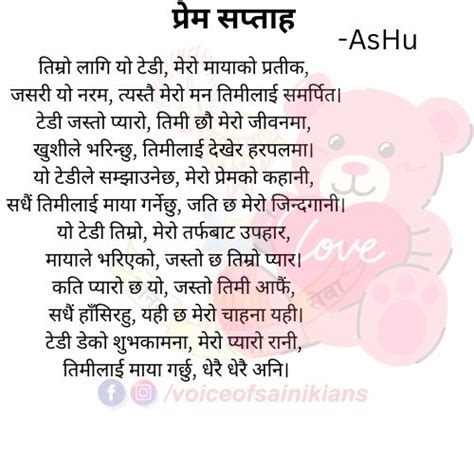 प्रेम सप्ताह
-AsHu
तिम्रो लागि यो टेडी, मेरो मायाको प्रतीक,
जसरी यो नरम, त्यस्तै मेरो मन तिमीलाई समर्पित।
टेडी जस्तो प्यारो, तिमी छौ मेरो जीवनमा,
खुशीले भरिन्छु, तिमीलाई देखेर हरपलमा।
यो टेडीले सम्झाउनेछ, मेरो प्रेमको कहानी,
सधैं तिमीलाई माया गर्नेछु, जति छ मेरो जिन्दगानी।
यो टेडी तिम्रो, मेरो तर्फबाट उपहार,
मायाले भरिएको, जस्तो छ तिम्रो प्यार।
कति प्यारो छ यो, जस्तो तिमी आफैं,
सधैं हाँसिरहु, यही छ मेरो चाहना यही।
टेडी डेको शुभकामना, मेरो प्यारो रानी,
तिमीलाई माया गर्छु, धेरै धेरै अनि।
love
सेवा
/voiceofsainikians